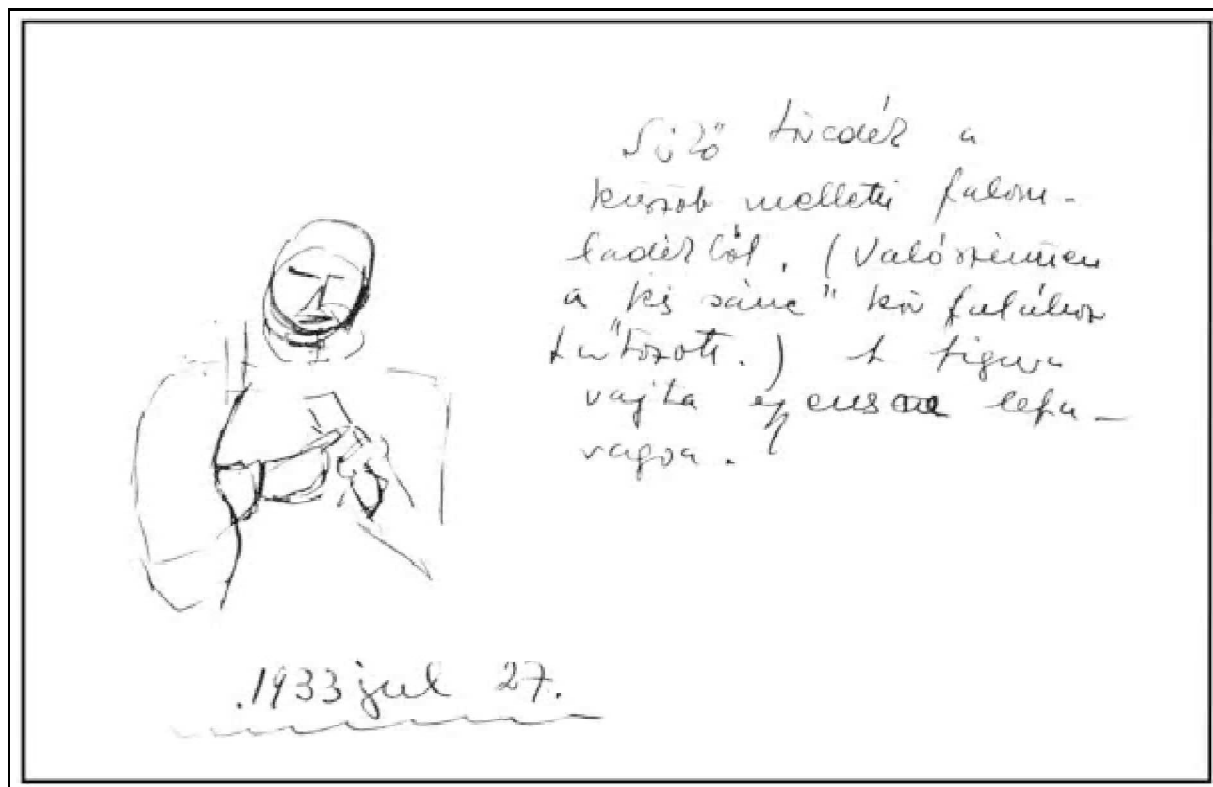 töredék a
küszöb melletti falom-
ladékból. (Valószinüen
a kis sánc" kör falához
tartozott.) A figura
rajta lefa-
ragva.
.1933 jul 27.